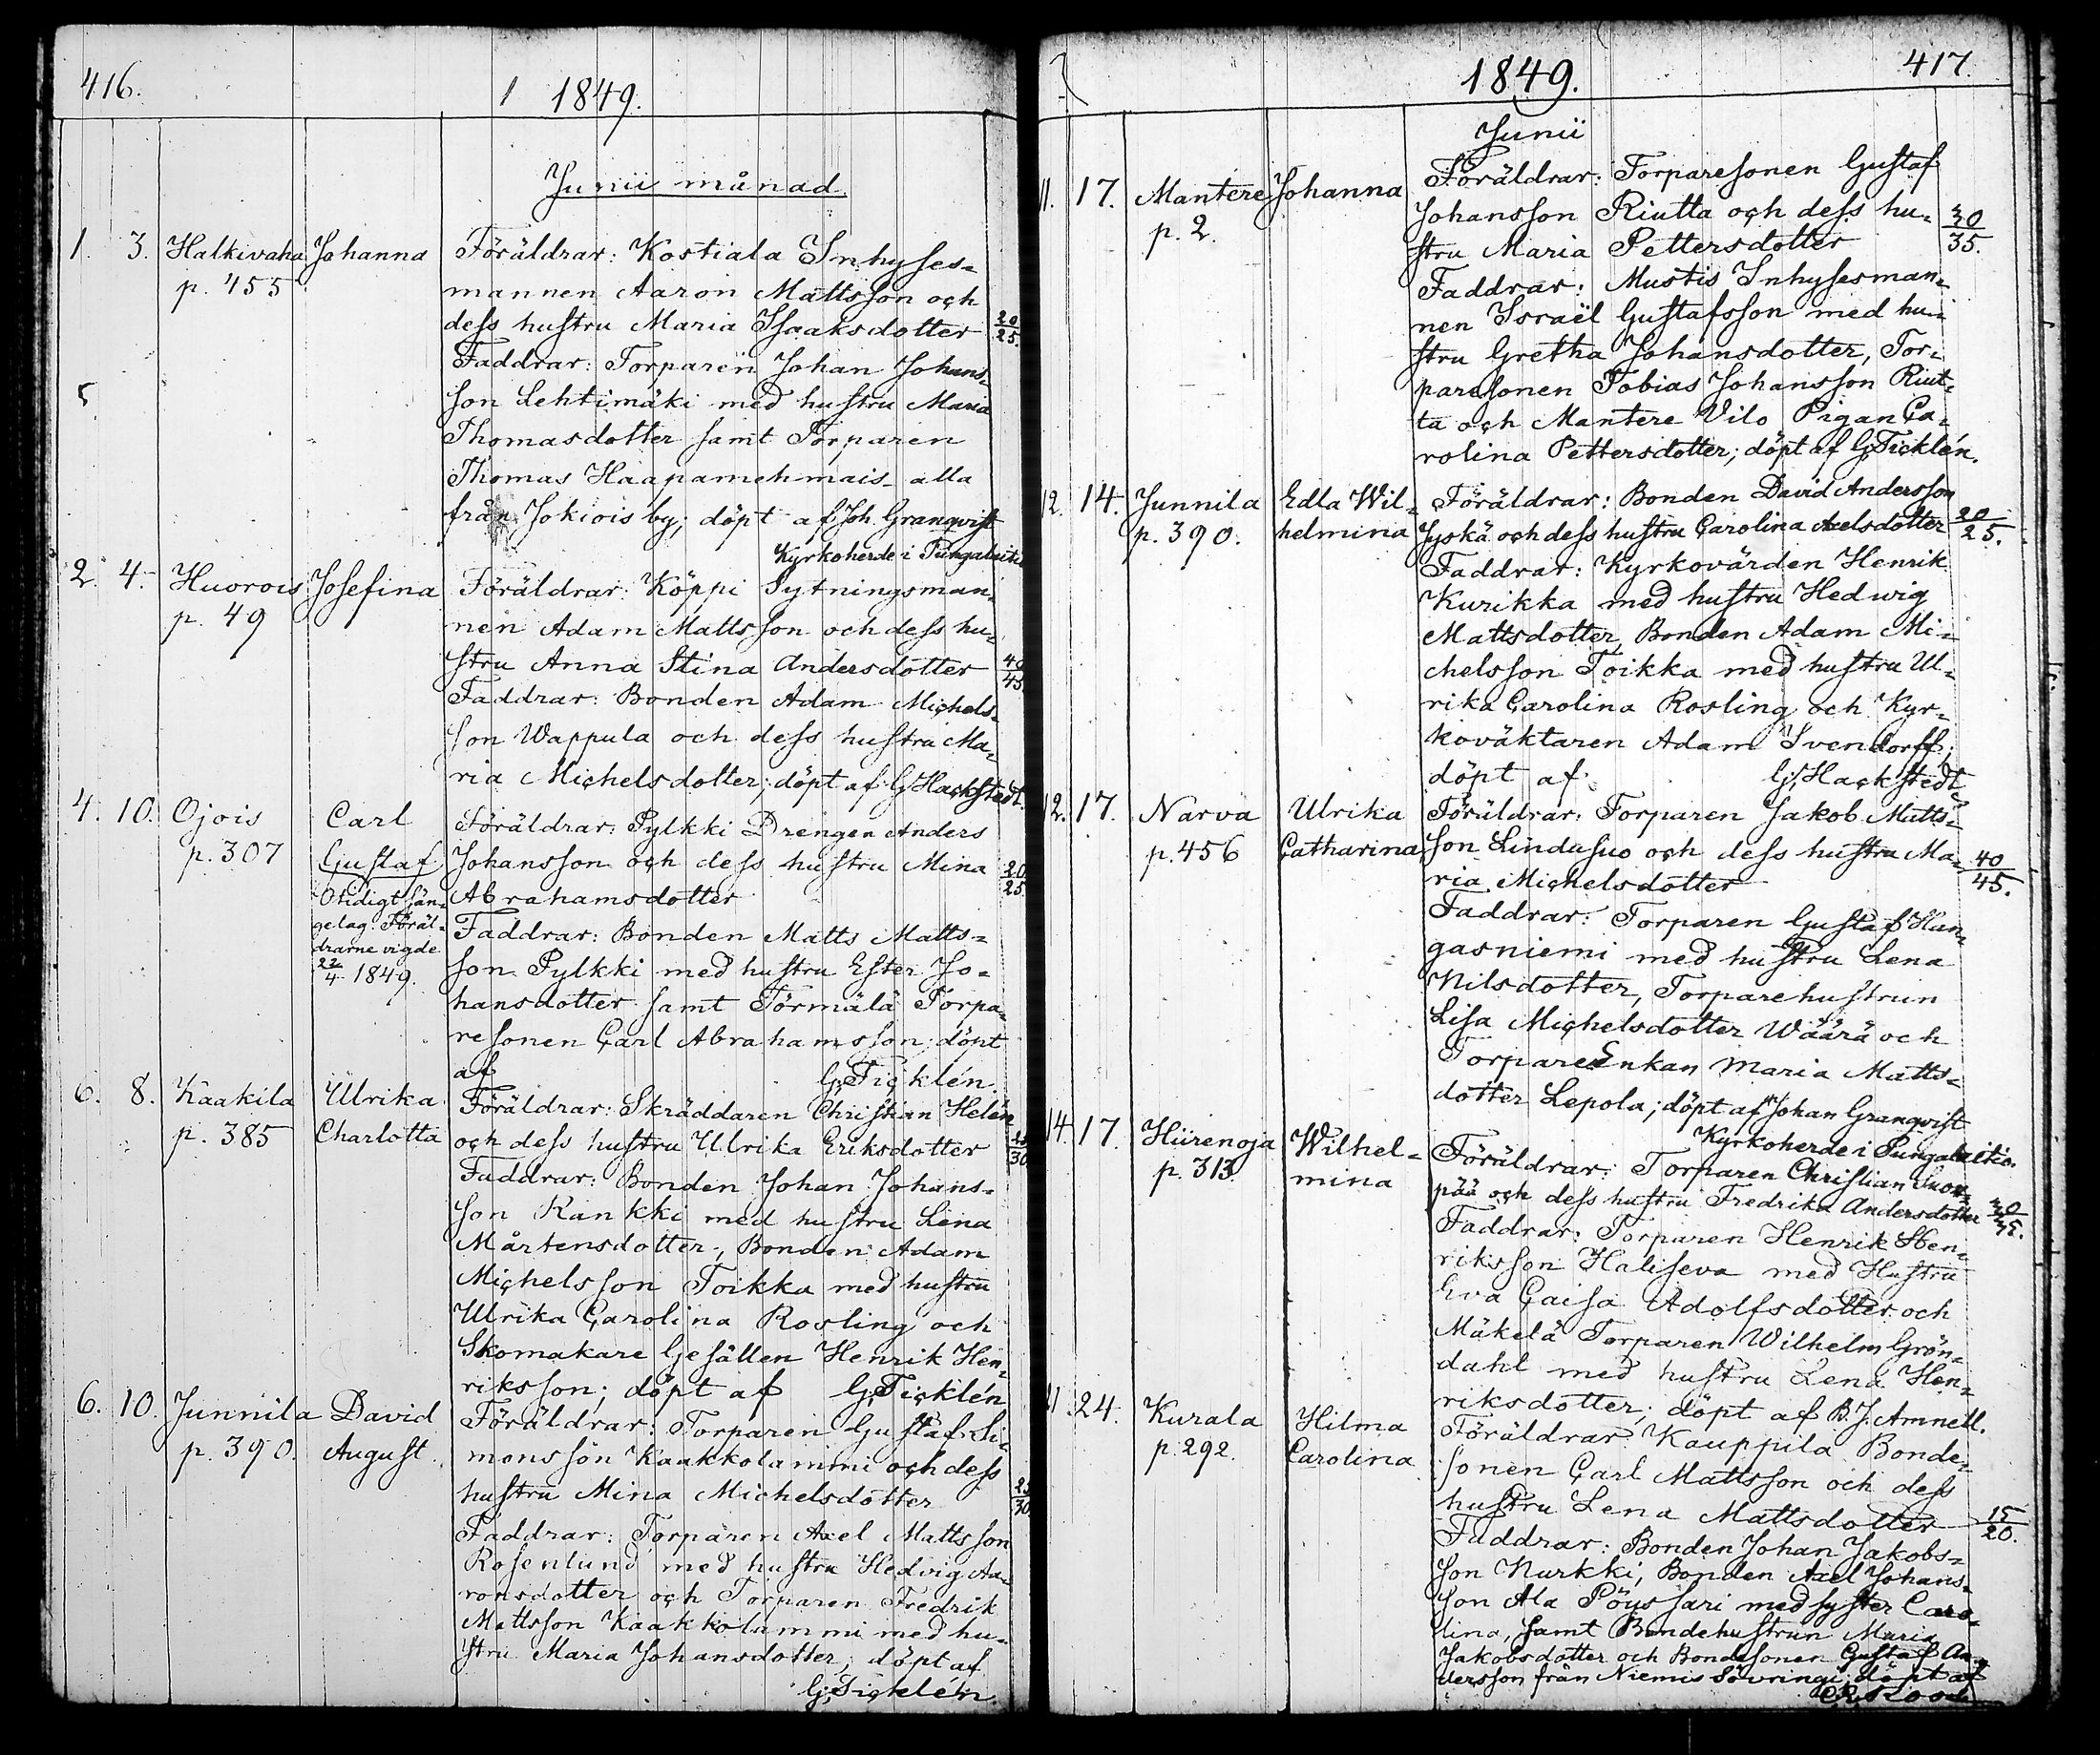 416.
1 1849.
Junii månad
1. 3. Halkivaha Johanna Föräldrar: Kostiala Inhyses-
p. 455 mannen Aaron Mattsson och
dess hustru Maria Isaaksdotter 20/25.
Faddrar: Torparen Johan Johans-
son Lehtimäki med hustru Maria
Thomasdotter samt Torparen
Thomas Haapamehmais alla
från Jokiois by; döpt af Joh. Granqvist
Kyrkoherde i Pungalaitio
2. 4. Huorois Josefina Föräldrar: Köppi Sytningsman-
p. 49 nen Adam Mattsson och dess hu-
stru Anna Stina Andersdotter 40/45.
Faddrar: Bonden Adam Michels-
son Wappula och dess hustru Ma-
ria Michelsdotter; döpt af G. Hackstedt.
4. 10. Ojois Carl Föräldrar: Pylkki Drengen Anders
p. 307 Gustaf Johansson och dess hustru Mina 20/25
Otidigt sän- Abrahamsdotter
gelag. Föräl- Faddrar: Bonden Matts Matts-
drarne vigde
22/4 1849. son Pylkki med hustru Ester Jo-
hansdotter samt Törmälä Torpa-
resonen Carl Abrahamsson; döpt
af G. Ticklén.
6. 8. Kaakila Ulrika Föräldrar: Skräddaren Christian Helén
p. 385 Charlotta och dess hustru Ulrika Eriksdotter 25/30
Faddrar: Bonden Johan Johans-
son Rankki med hustru Lena
Mårtensdotter, Bonden Adam
Michelsson Toikka med hustru
Ulrika Carolina Rosling och
Skomakare Gesällen Henrik Hen-
riksson; döpt af G. Ticklén
6. 10. Junnila David Föräldrar: Torparen Gustaf Si-
p. 390. August monsson Kaakkolammi och dess
hustru Mina Michelsdotter 25/30
Faddrar: Torparen Axel Mattsson
Rosenlund med hustru Hedvig Aa-
ronsdotter och Torparen Fredrik
Mattsson Kaakkolammi med hu-
stru Maria Johansdotter; döpt af
G. Ticklén.
1849. 417.
Junii
11. 17. Mantere Johanna Föräldrar: Torparesonen Gustaf
p. 2. Johansson Riutta och dess hu- 30/35.
stru Maria Pettersdotter
Faddrar: Mustis Inhysesman-
nen Israël Gustafsson med hu-
stru Gretha Johansdotter, Tor-
paresonen Tobias Johansson Riut-
ta och Mantere Vilo Pigan Ca-
rolina Pettersdotter; döpt af G. Ticklén.
12. 14. Junnila Edla Wil- Föräldrar: Bonden David Andersson
p. 390. helmina Jyskä och dess hustru Carolina Axelsdotter 20/25.
Faddrar: Kyrkovärden Henrik
Kurikka med hustru Hedwig
Mattsdotter, Bonden Adam Mi-
chelsson Toikka med hustru Ul-
rika Carolina Rosling och Kyr-
koväktaren Adam Svendorff;
döpt af G. Hackstedt
12. 17. Narva Ulrika Föräldrar: Torparen Jakob Matts-
p. 456 Catharina son Lindusuo och dess hustru Ma- 40/45.
ria Michelsdotter
Faddrar: Torparen Gustaf Han-
gasniemi med hustru Lena
Nilsdotter, Torparehustrun
Lisa Michelsdotter Wäärä och
TorpareEnkan Maria Matts-
dotter Lepola; döpt af Johan Granqvist
Kyrkoherde i Pungalaitio.
14. 17. Hiirenoja Wilhel- Föräldrar: Torparen Christian Suon-
p. 313. mina pää och dess hustru Fredrika Andersdotter 30/35.
Faddrar: Torparen Henrik Hen-
riksson Haliseva med Hustru
Eva Caisa Adolfsdotter och
Mäkelä Torparen Wilhelm Grön-
dahl med hustru Lena Hen-
riksdotter; döpt af B. J. Amnell.
21. 24. Kurala Hilma Föräldrar: Kauppila Bonde-
p. 292. Carolina sonen Carl Mattsson och dess
hustru Lena Mattsdotter 15/20.
Faddrar: Bonden Johan Jakobs-
son Nurkki, Bonden Axel Johans-
son Ala Pöyssari med syster Caro-
lina, samt Bondehustrun Maria
Jakobsdotter och Bondesonen Gustaf An-
dersson från Niemis Sävringi; döpt af